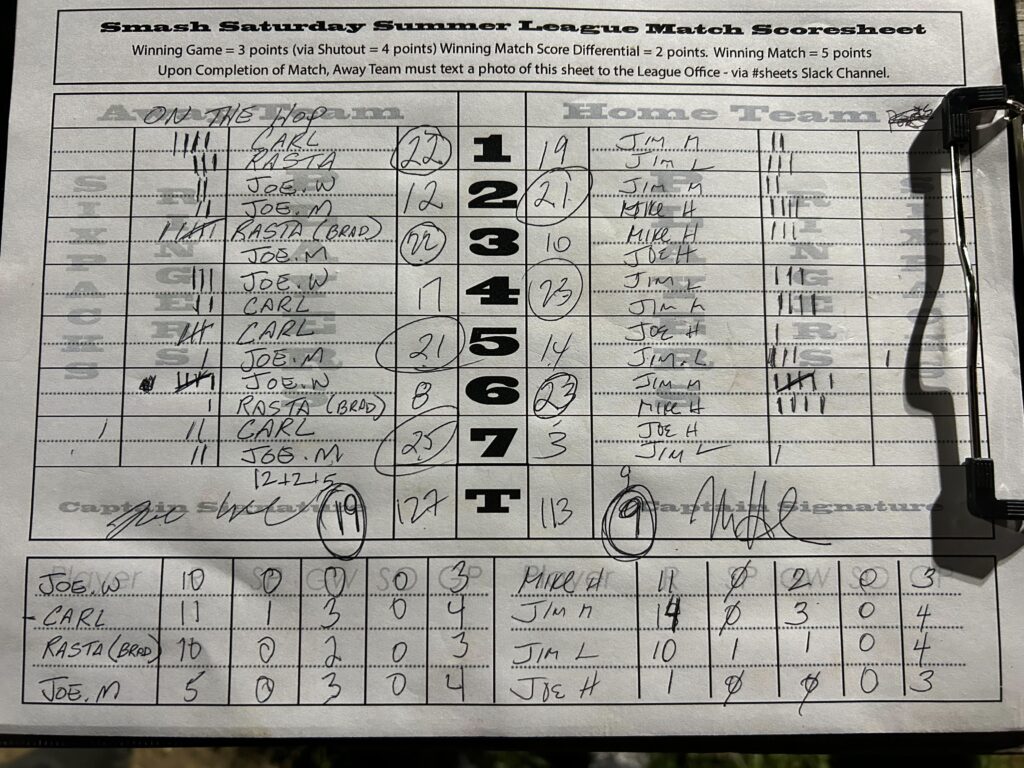 Smash Saturday Summer League Match Scoresheet
Winning Game = 3 points (via Shutout = 4 points) Winning Match Score Differential = 2 points. Winning Match = 5 points
Upon Completion of Match, Away Team must text a photo of this sheet to the League Office - via #sheets Slack Channel.
Away Team Home Team
ON THE HOP
CARL 22 1 19 JIM M
RASTA JIM L
JOE.W 12 2 21 JIM M
JOE.M MIKE H
RASTA (BRAD) 22 3 10 MIKE H
JOE.M JOE H
JOE.W 17 4 23 JIM L
CARL JIM M
CARL 21 5 14 JOE H
JOE.M JIM.L
JOE.W 8 6 23 JIM M
RASTA (BRAD) MIKE H
CARL 25 7 3 JOE H
JOE.M JIM L
12+2+5 9
Captain Signature 19 127 T 113 9 Captain Signature
Player P SP GW SO GP Player P SP GW SO GP
JOE.W 10 0 0 0 3 MIKE H 11 0 2 0 3
CARL 11 1 3 0 4 JIM M 14 0 3 0 4
RASTA (BRAD) 10 0 2 0 3 JIM L 10 1 1 0 4
JOE.M 5 0 3 0 4 JOE H 1 0 0 0 3